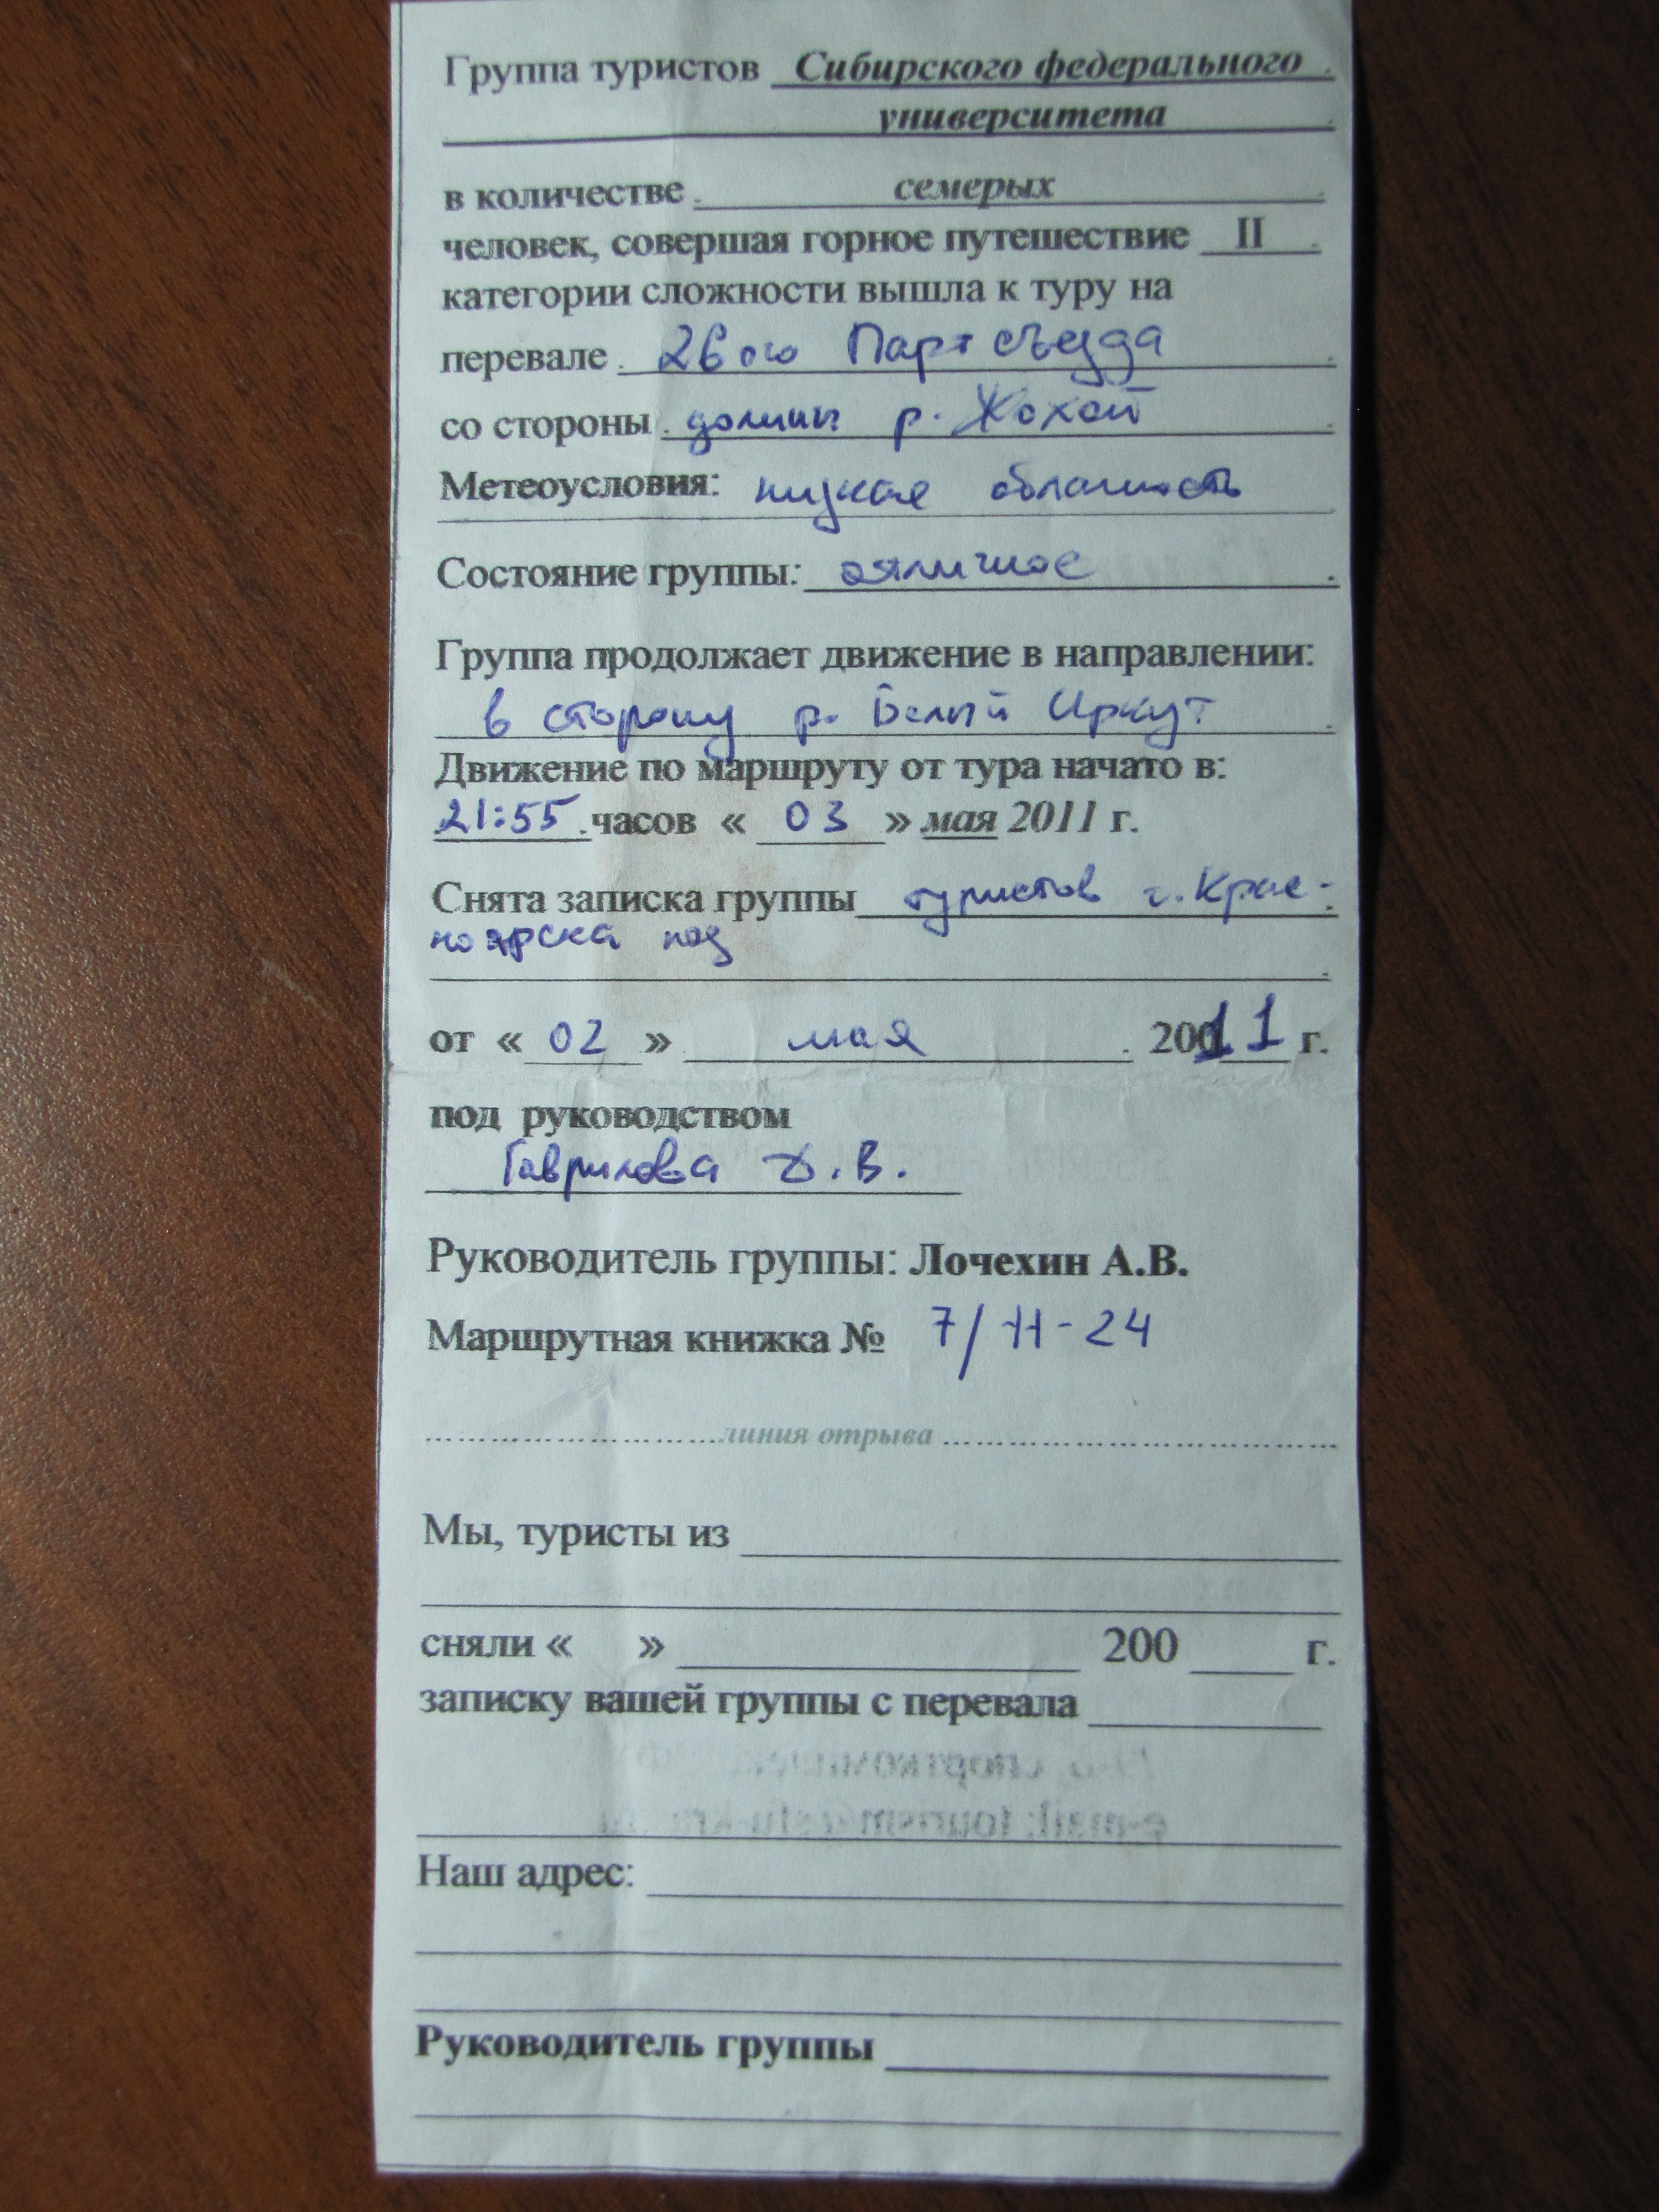 Группа туристов Сибирского федерального
университета
в количестве семерых
человек, совершая горное путешествие II
категории сложности вышла к туру на
перевале 26ого Партсъезда
со стороны долины р. Жохой
Метеоусловия: низкая облачность
Состояние группы: отличное
Группа продолжает движение в направлении:
в сторону р. Белый Иркут
Движение по маршруту от тура начато в:
21:55 часов « 03 » мая 2011 г.
Снята записка группы туристов г. Крас-
ноярска под
от « 02 » мая 2011 г.
под руководством
Гаврилова Д.В.
Руководитель группы: Лочехин А.В.
Маршрутная книжка № 7/Н-24
линия отрыва
Мы, туристы из
сняли « » 200 г.
записку вашей группы с перевала
Наш адрес:
Руководитель группы